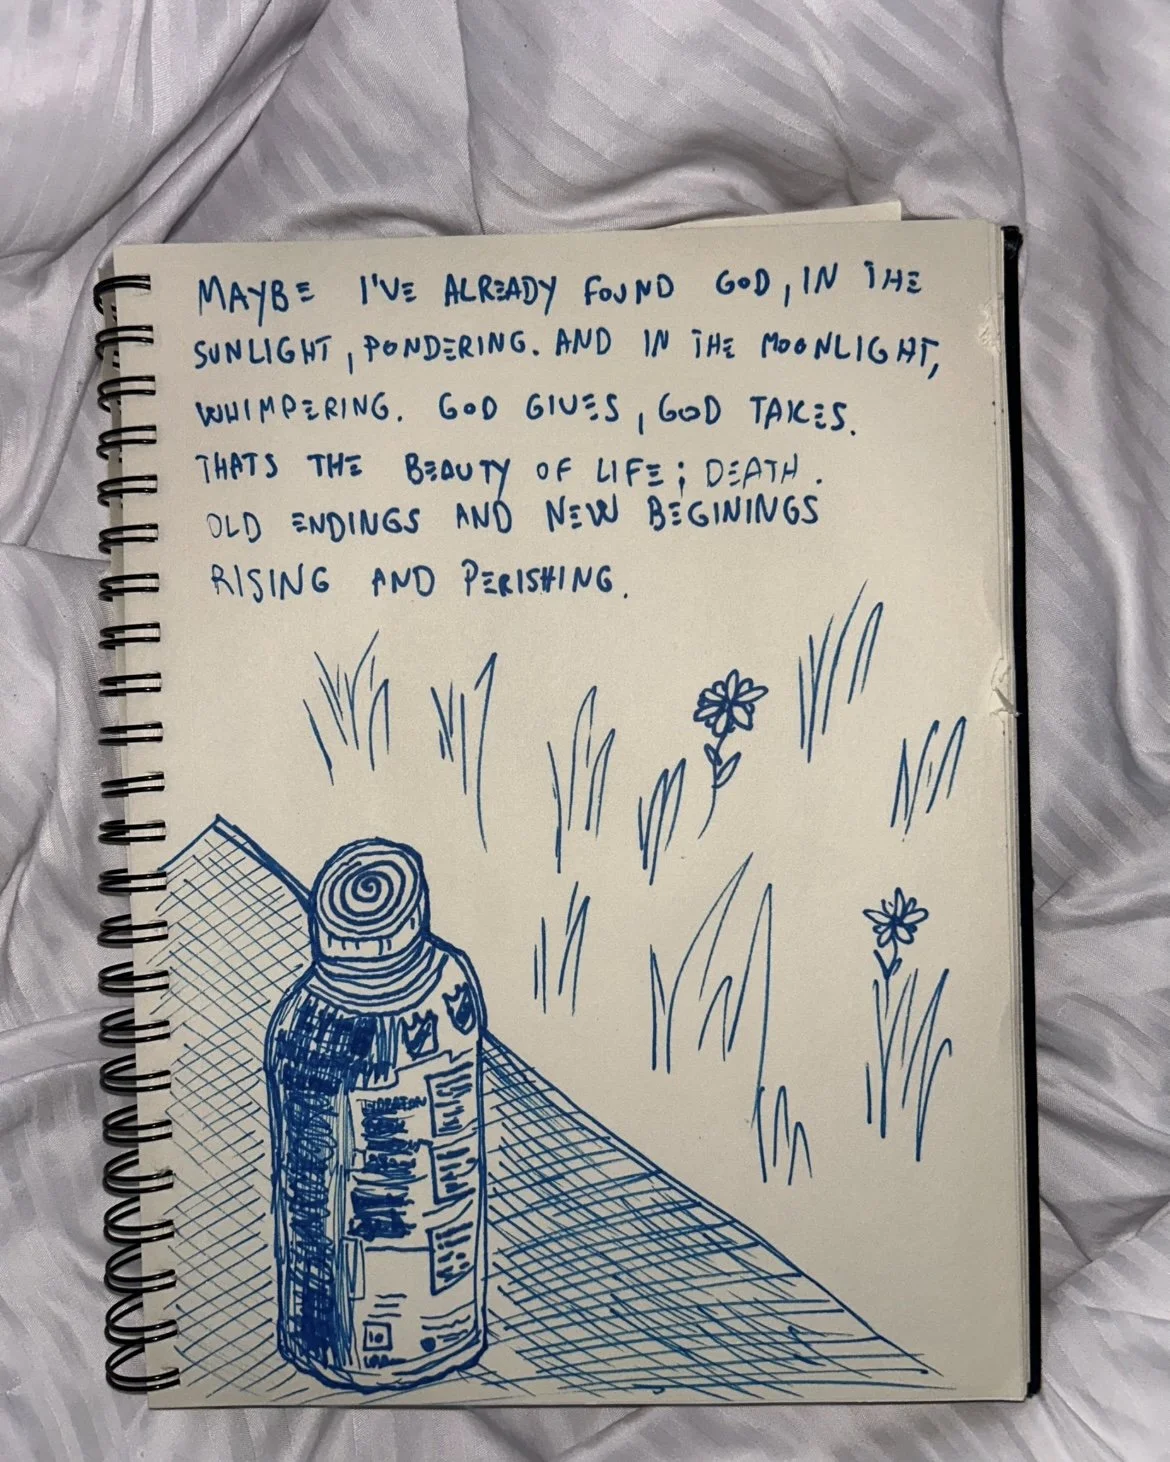 MAYBE I'VE ALREADY FOUND GOD, IN THE
SUNLIGHT, PONDERING. AND IN THE MOONLIGHT,
WHIMPERING. GOD GIVES, GOD TAKES.
THATS THE BEAUTY OF LIFE; DEATH.
OLD ENDINGS AND NEW BEGININGS
RISING AND PERISHING.
10